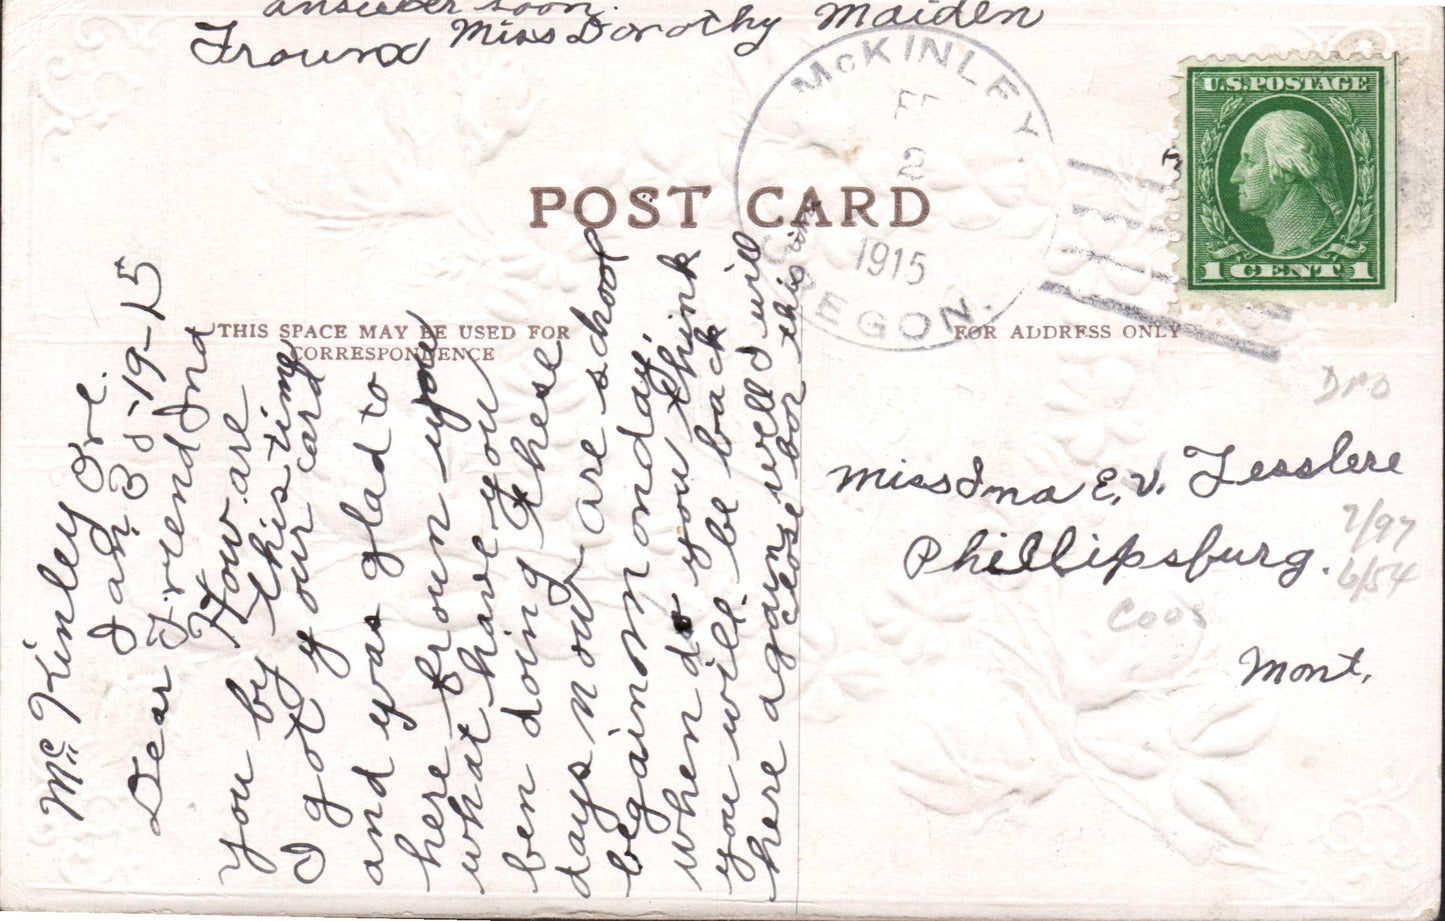 answer soon.
From Miss Dorothy Maiden
McKINLEY.
2
1915
OREGON.
U.S. POSTAGE
1 CENT 1
POST CARD
THIS SPACE MAY BE USED FOR
CORRESPONDENCE
FOR ADDRESS ONLY
Mc Kinley Ore.
Jan 30-19-15
Dear Friend Ina
How are
you by this time
I got your card
and was glad to
here from you
what have you
ben doing these
days now are school
begain monday.
when do you think
you will be back
here again well I will
close for this time
Miss Ina E. V.
Phillipsburg.
Mont.
DPO
7/97
6/54
Coos